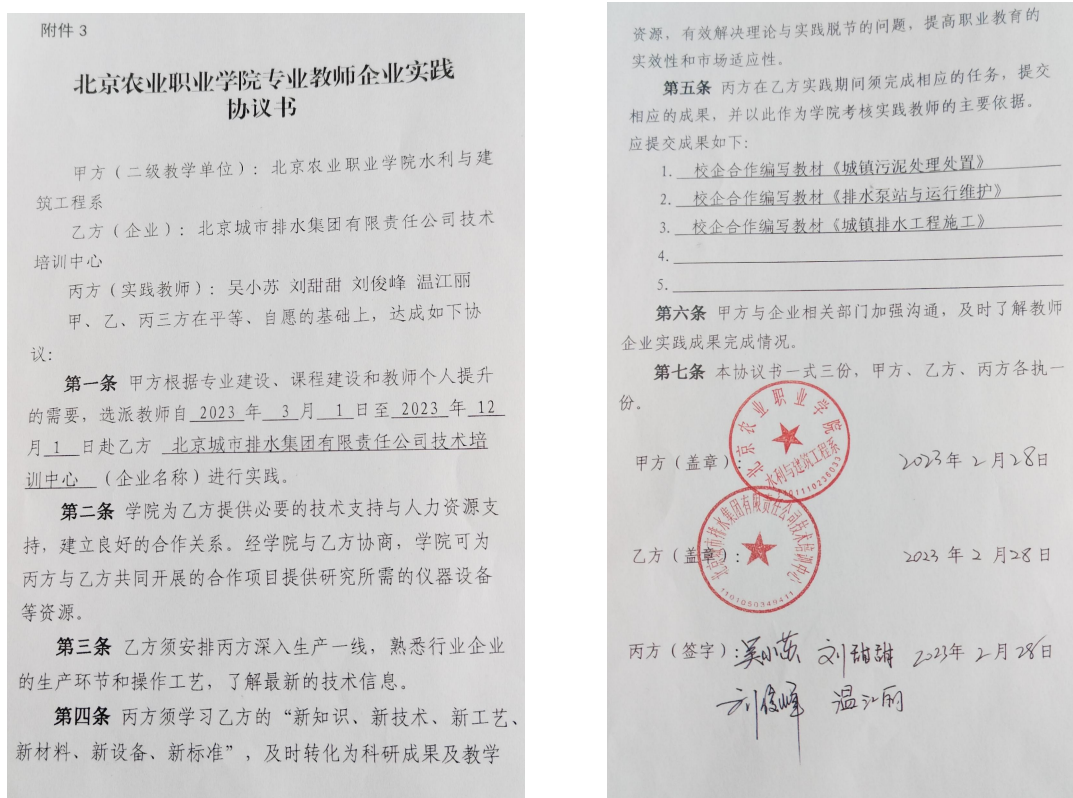 附件 3
北京农业职业学院专业教师企业实践
协议书
甲方（二级教学单位）：北京农业职业学院水利与建
筑工程系
乙方（企业）：北京城市排水集团有限责任公司技术
培训中心
丙方（实践教师）：吴小苏 刘甜甜 刘俊峰 温江丽
甲、乙、丙三方在平等、自愿的基础上，达成如下协
议：
第一条 甲方根据专业建设、课程建设和教师个人提升
的需要，选派教师自 2023 年 3 月 1 日至 2023 年 12
月 1 日赴乙方 北京城市排水集团有限责任公司技术培
训中心 （企业名称）进行实践。
第二条 学院为乙方提供必要的技术支持与人力资源支
持，建立良好的合作关系。经学院与乙方协商，学院可为
丙方与乙方共同开展的合作项目提供研究所需的仪器设备
等资源。
第三条 乙方须安排丙方深入生产一线，熟悉行业企业
的生产环节和操作工艺，了解最新的技术信息。
第四条 丙方须学习乙方的“新知识、新技术、新工艺、
新材料、新设备、新标准”，及时转化为科研成果及教学
资源，有效解决理论与实践脱节的问题，提高职业教育的
实效性和市场适应性。
第五条 丙方在乙方实践期间须完成相应的任务，提交
相应的成果，并以此作为学院考核实践教师的主要依据。
应提交成果如下：
1. 校企合作编写教材《城镇污泥处理处置》
2. 校企合作编写教材《排水泵站与运行维护》
3. 校企合作编写教材《城镇排水工程施工》
4.
5.
第六条 甲方与企业相关部门加强沟通，及时了解教师
企业实践成果完成情况。
第七条 本协议书一式三份，甲方、乙方、丙方各执一
份。
北京农业职业学院
水利与建筑工程系
1101110236033
甲方（盖章）： 2023年2月28日
北京城市排水集团有限责任公司技术培训中心
乙方（盖章）： 2023年2月28日
1101050349411
丙方（签字）：吴小苏 刘甜甜 2023年2月28日
刘俊峰 温江丽